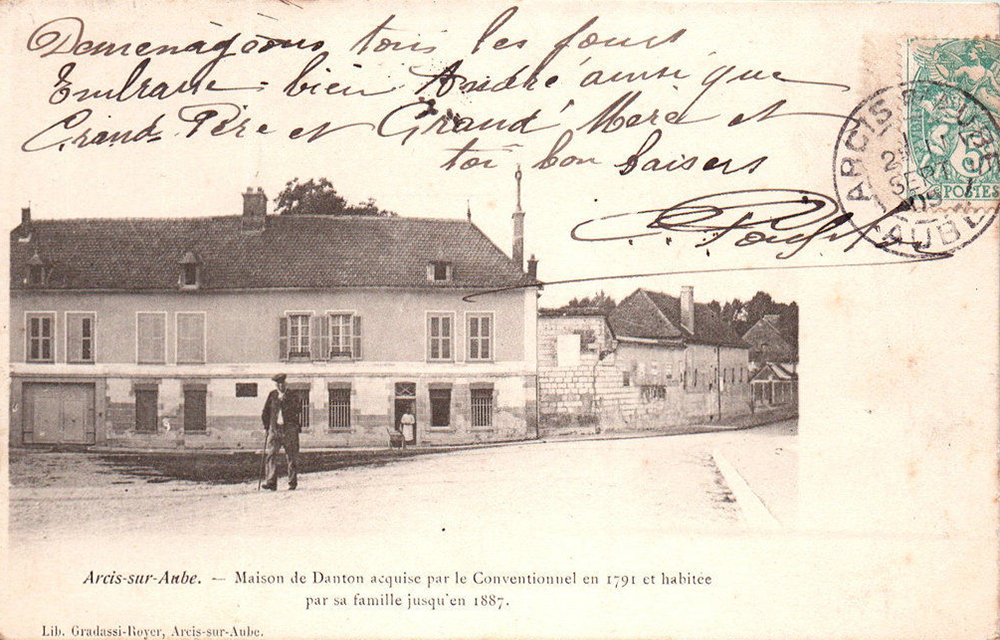 Demenageons tous les jours
Embrasse bien André ainsi que
Grand Père et Grand' Mère et
toi bon baisers
ARCIS-S-AUBE
SEPT
AUBE
5c
POSTES
Arcis-sur-Aube. — Maison de Danton acquise par le Conventionnel en 1791 et habitée
par sa famille jusqu'en 1887.
Lib. Gradassi-Royer, Arcis-sur-Aube.